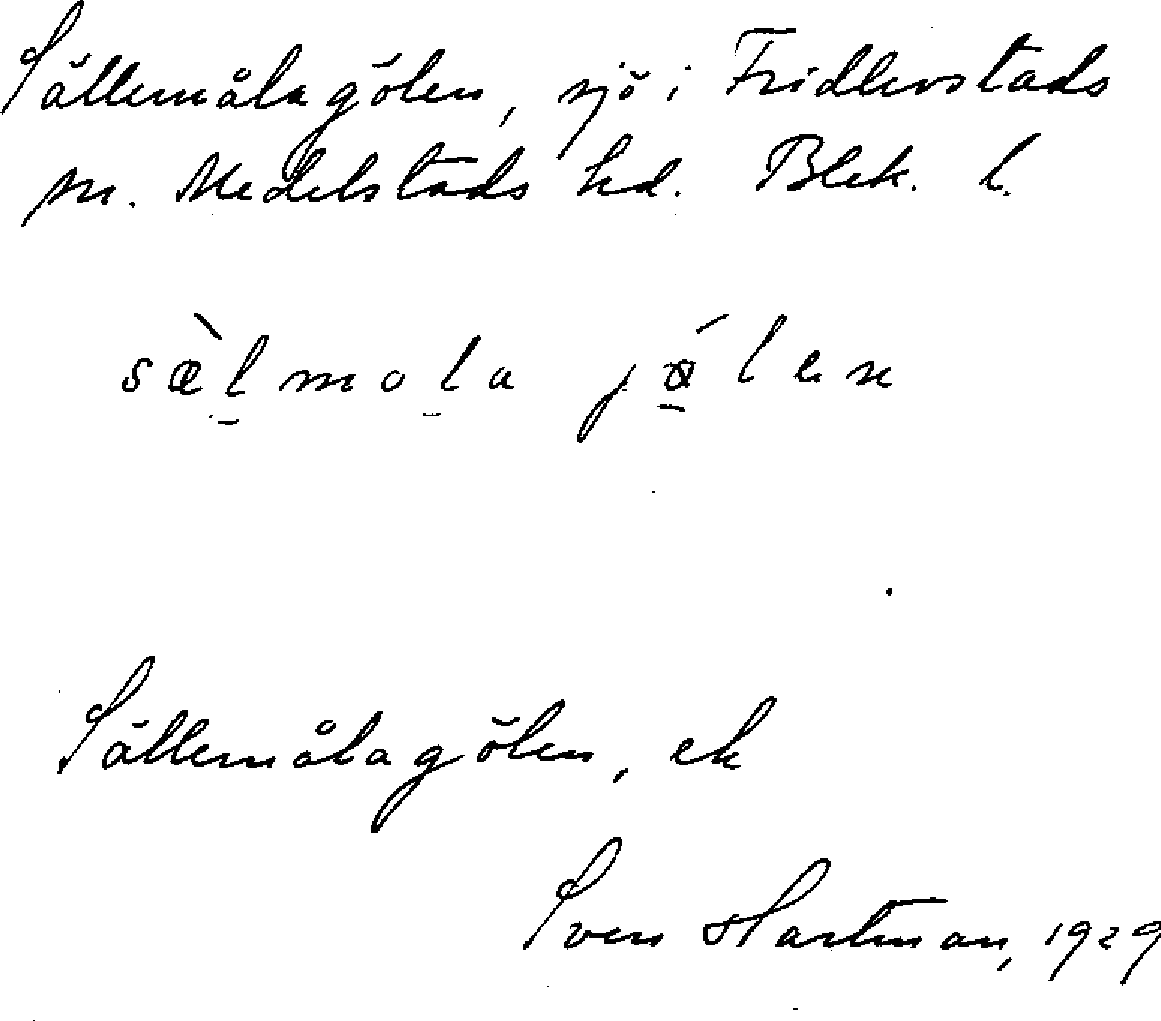 Sällemåla gölen, sjö i Fridlevstads
sn. Medelstads hd. Blek. l.
sæ̀l̠mol̠a jǿ̠len
Sällemålagölen, ek
Sven Hartman, 1929